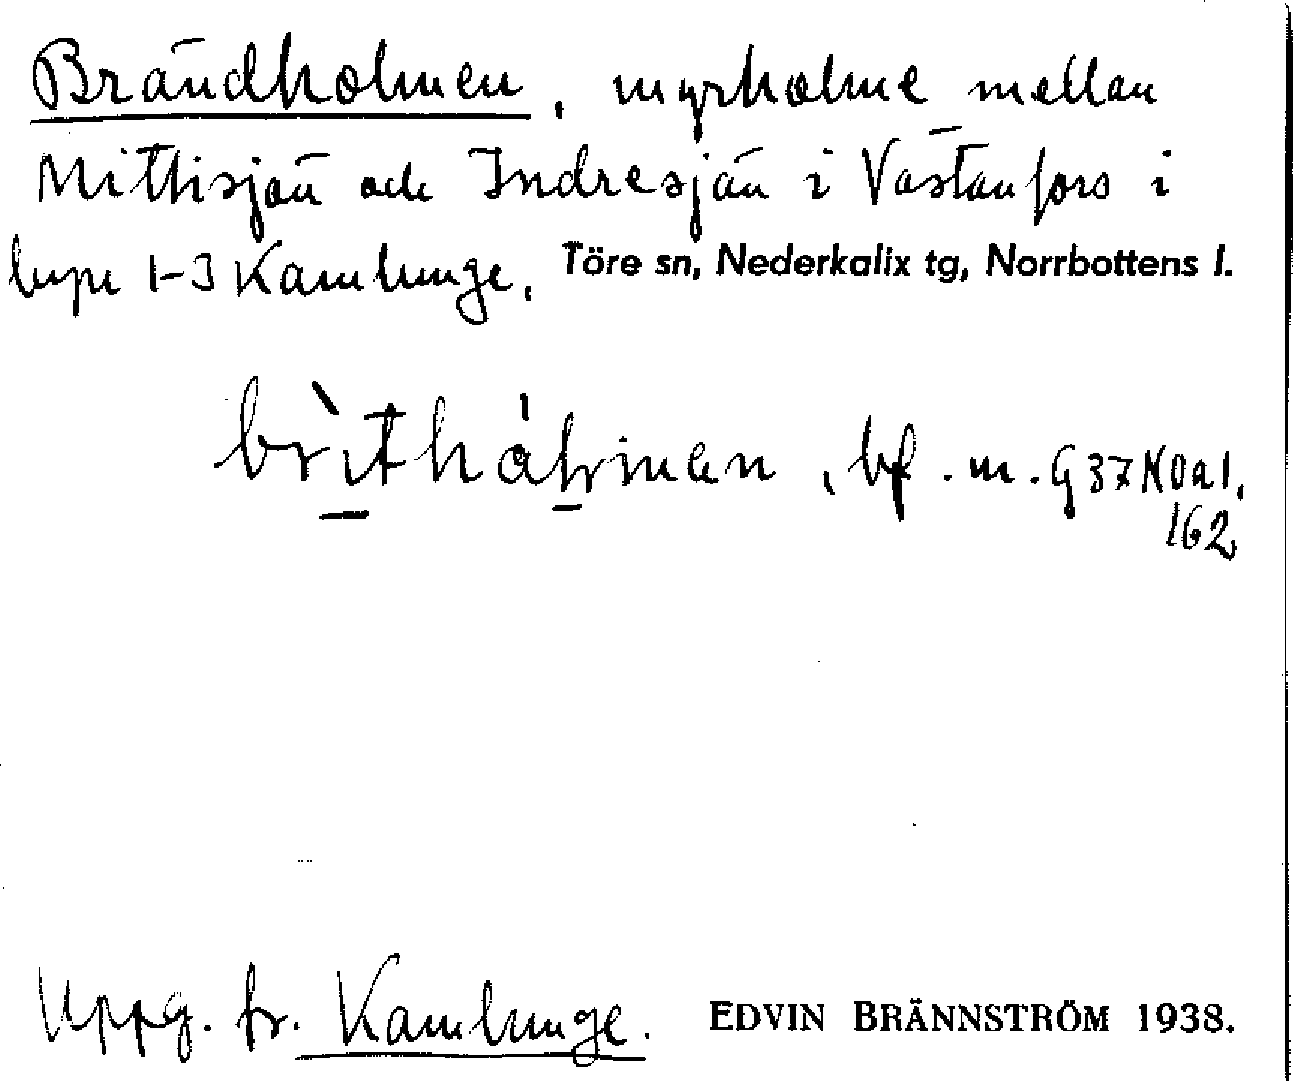 Brändholmen, myrholme mellan
Mittisjön och Indresjön i Västanfors i
bypn 1-3 Kamlunge, Töre sn, Nederkalix tg, Norrbottens l.
bf. m. G37NOa1,
162
Uppg. fr. Kamlunge. EDVIN BRÄNNSTRÖM 1938.